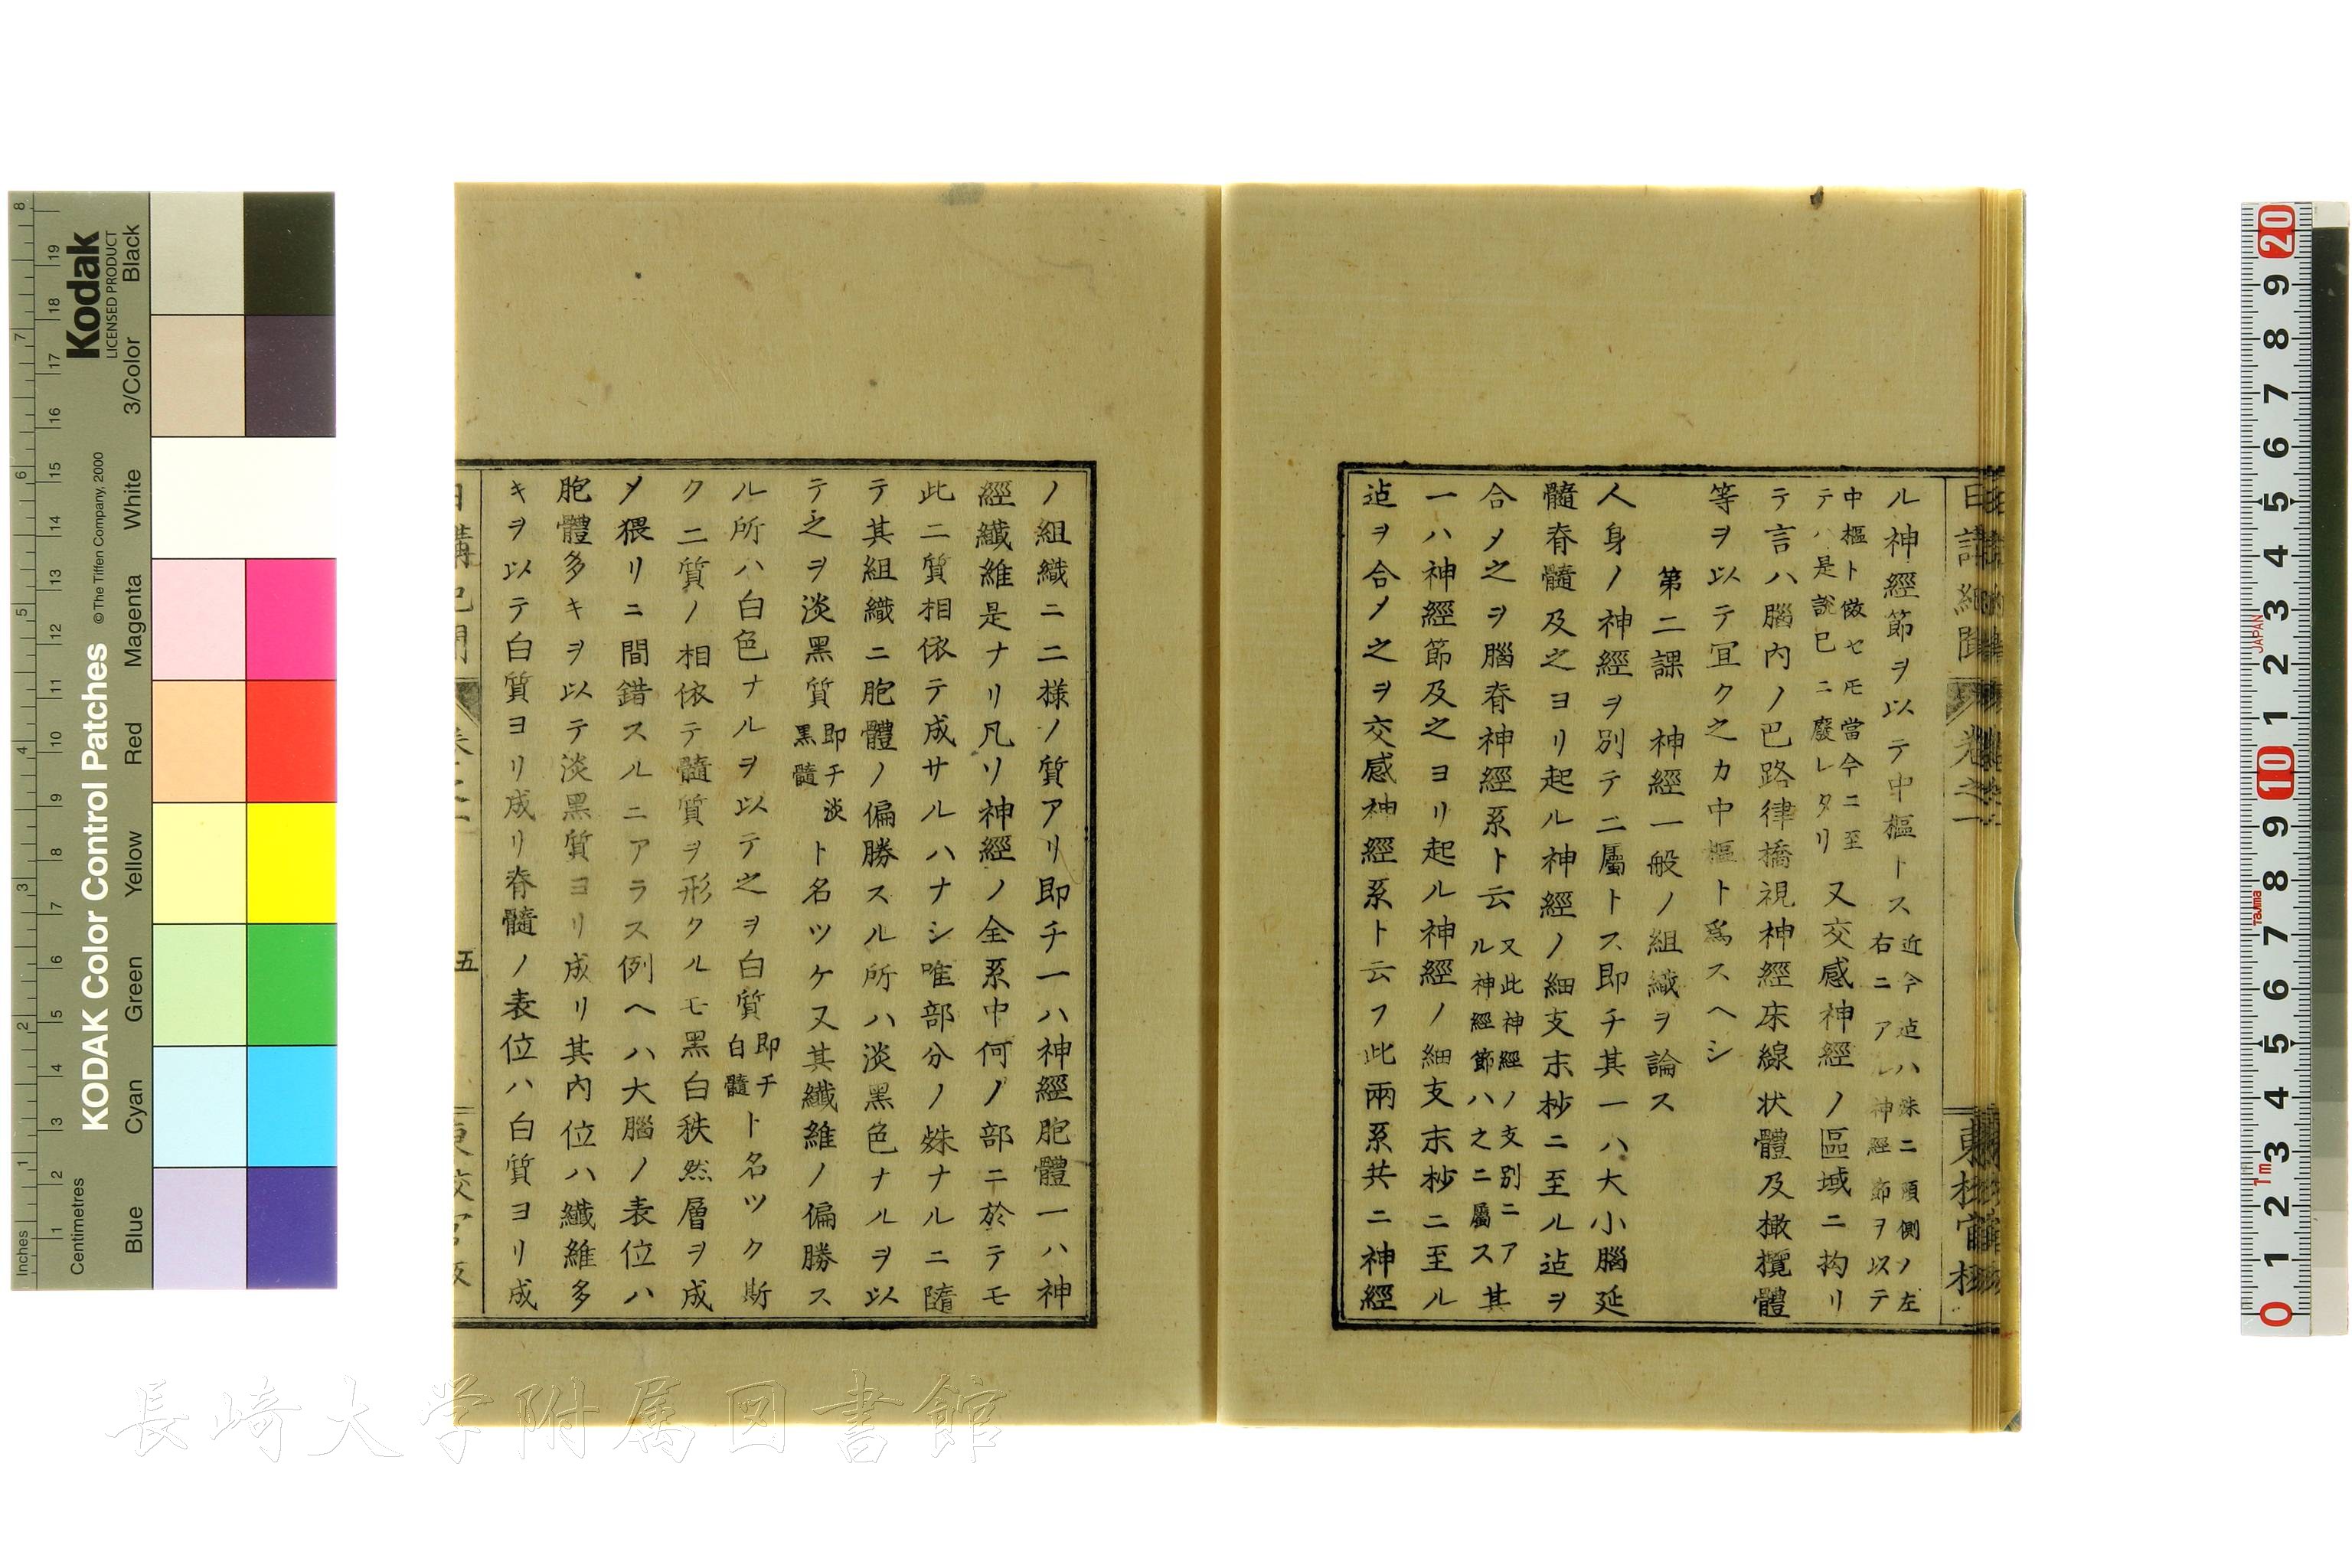 日講紀聞 卷之二 東校官板
ル神經節ヲ以テ中樞トス近今迠ハ殊ニ頭側ノ左右ニアル神經節ヲ以テ
中樞ト做セ𪜈當今ニ至テハ是說已ニ廢レタリ又交感神經ノ區域ニ拘リ
テ言ハ腦内ノ巴路律橋視神經床線状體及橄欖體
等ヲ以テ宜ク之カ中樞ト爲スヘシ
第二課 神經一般ノ組織ヲ論ス
人身ノ神經ヲ別テ二屬トス即チ其一ハ大小腦延
髓脊髓及之ヨリ起ル神經ノ細支末杪ニ至ル迠ヲ
合〆之ヲ腦脊神經系ト云又此神經ノ支別ニアル神經節ハ之ニ屬ス其
一ハ神經節及之ヨリ起ル神經ノ細支末杪ニ至ル
迠ヲ合〆之ヲ交感神經系ト云フ此兩系共ニ神經
ノ組織ニ二樣ノ質アリ即チ一ハ神經胞體一ハ神
經纖維是ナリ凡ソ神經ノ全系中何ノ部ニ於テモ
此二質相依テ成サルハナシ唯部分ノ殊ナルニ隨
テ其組織ニ胞體ノ偏勝スル所ハ淡黑色ナルヲ以
テ之ヲ淡黑質即チ淡黑髓ト名ツケ又其纖維ノ偏勝ス
ル所ハ白色ナルヲ以テ之ヲ白質即チ白髓ト名ツク斯
ク二質ノ相依テ髓質ヲ形クルモ黑白秩然層ヲ成
〆猥リニ間錯スルニアラス例ヘハ大腦ノ表位ハ
胞體多キヲ以テ淡黑質ヨリ成リ其内位ハ纖維多
キヲ以テ白質ヨリ成リ脊髓ノ表位ハ白質ヨリ成
五
長崎大学附属図書館
KODAK Color Control Patches
©The Tiffen Company, 2000
Kodak
LICENSED PRODUCT
Inches
Centimetres
Blue Cyan Green Yellow Red Magenta White 3/Color Black
1 2 3 4 5 6 7 8
1 2 3 4 5 6 7 8 9 10 11 12 13 14 15 16 17 18 19
20 9 8 7 6 5 4 3 2 1 10 9 8 7 6 5 4 3 2 1 0
JAPAN
Tajima
1m